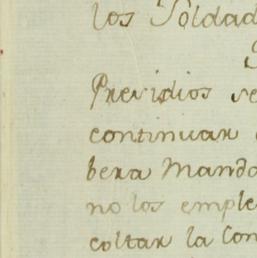 los Soldad
Presidios se
continuar
bera Manda
no los emple
coltar la Con